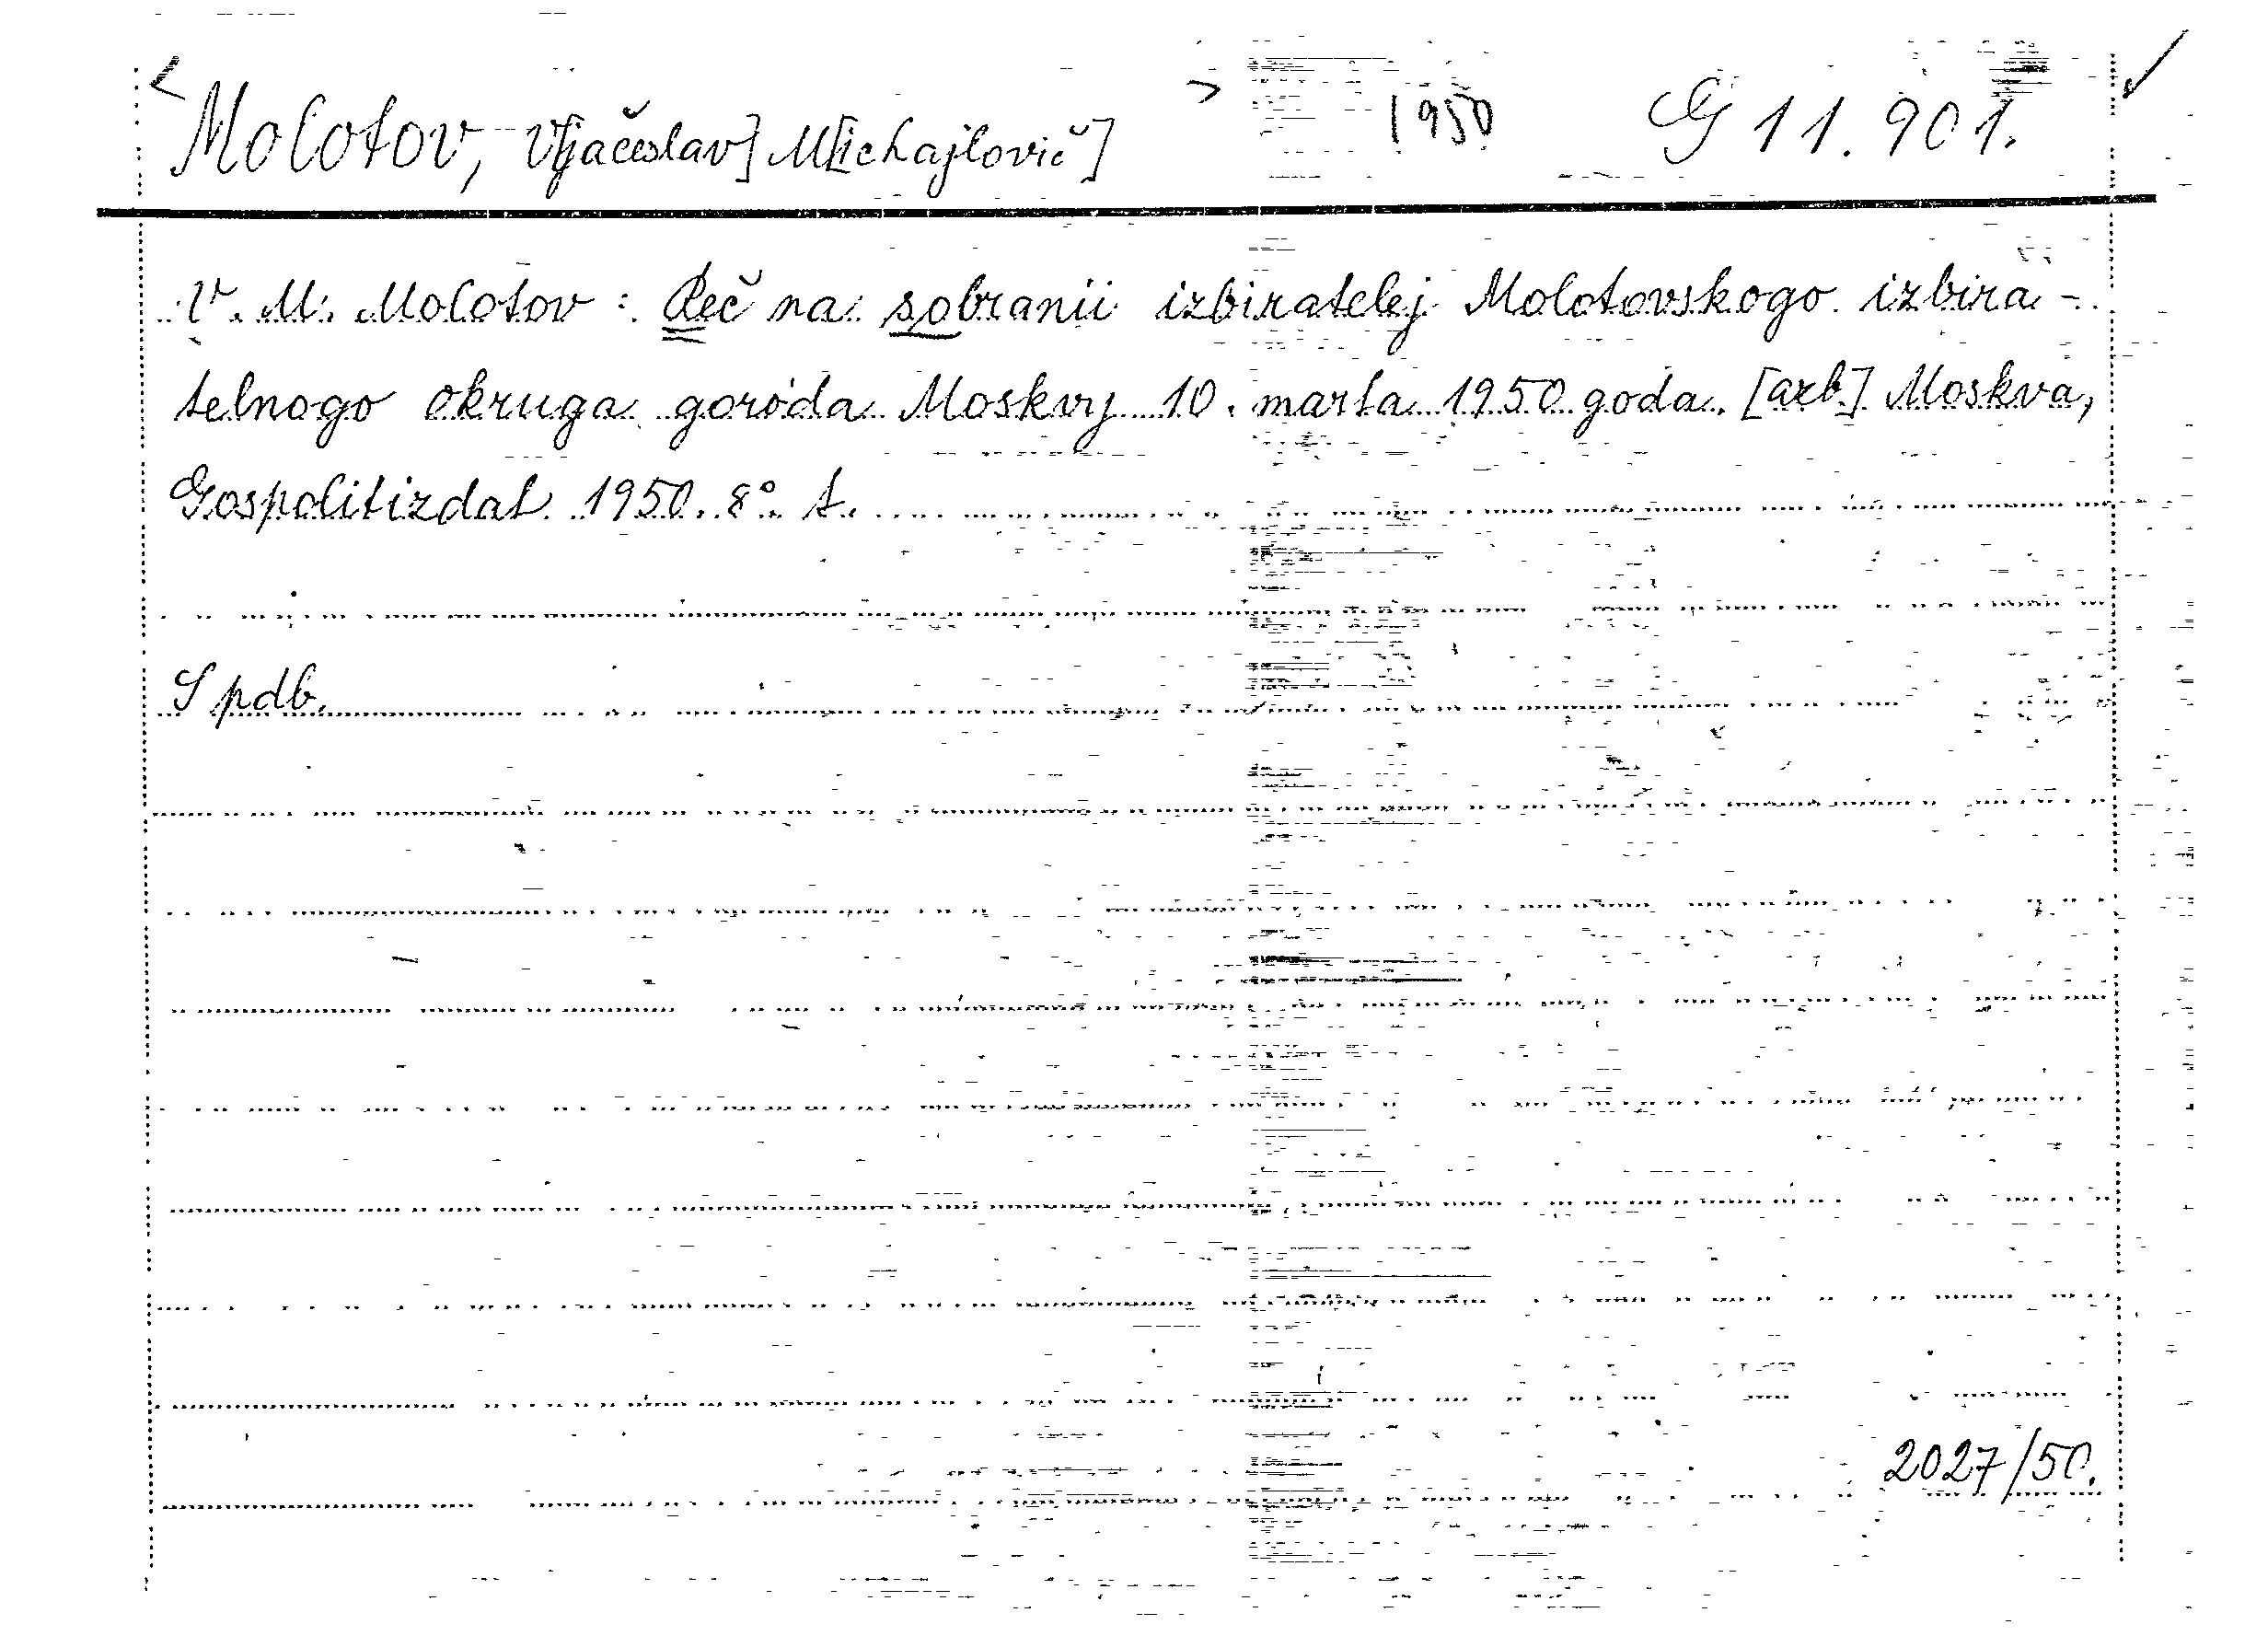 < Molotov, V[jačeslav] M[ichajlovič] > 1950 G 11.901.
V. M. Molotov: Reč na sobranii izbiratelej Molotovskogo izbira-
telnogo okruga goroda Moskvy 10. marta 1950 goda. [azb.] Moskva,
Gospolitizdat 1950. 8°. t.
S pdb.
2027/50.